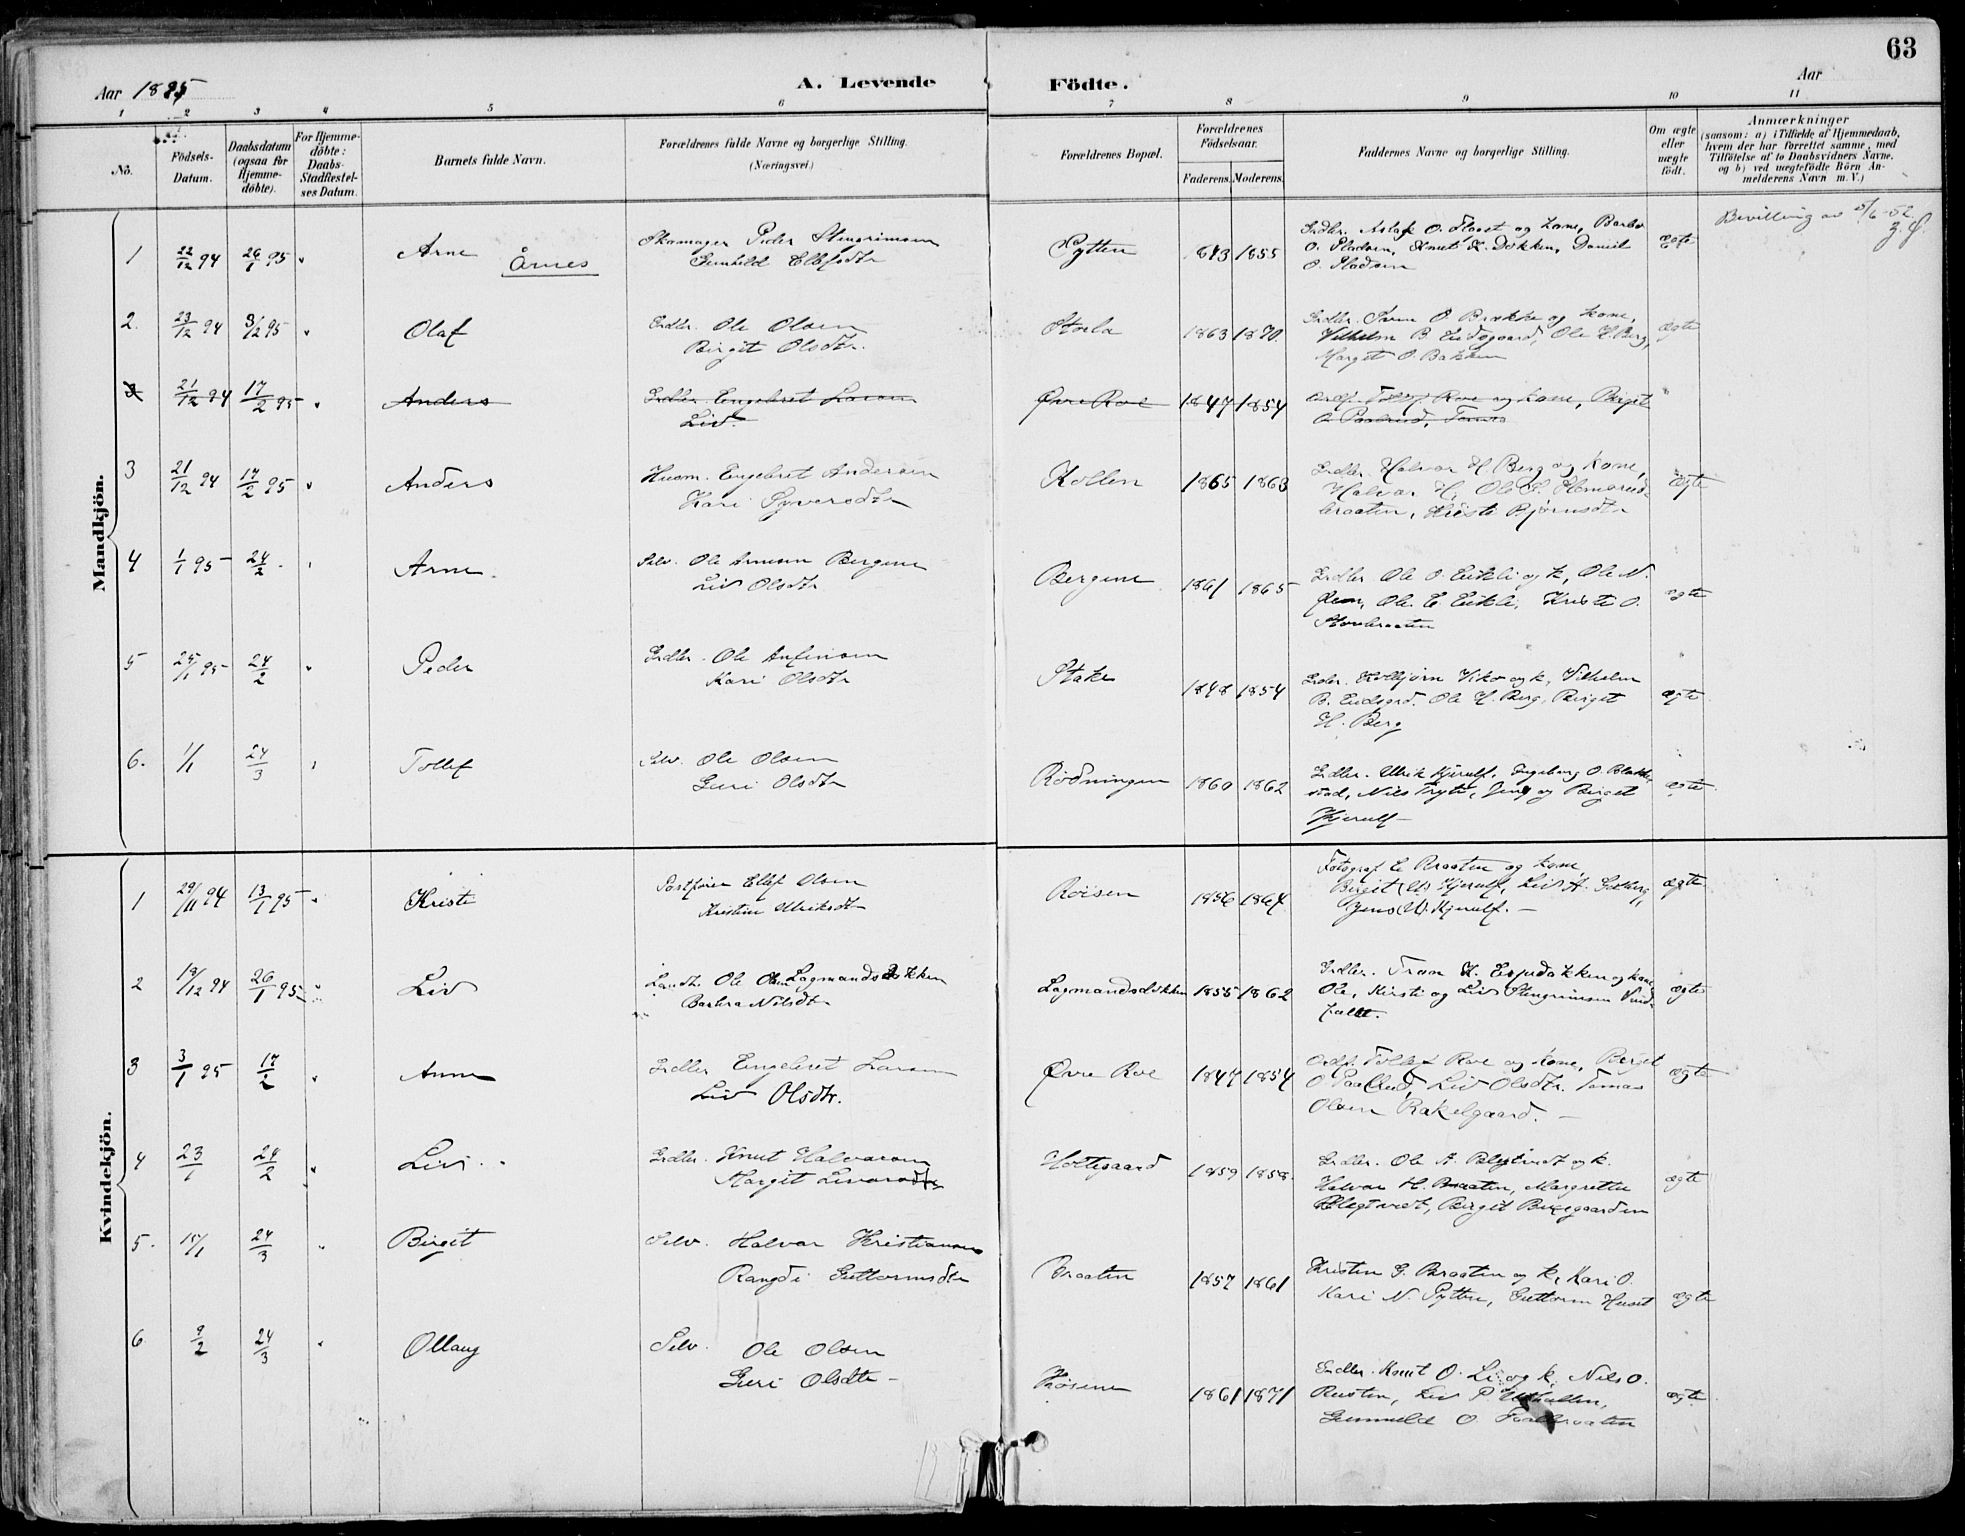 63
Aar 1895
A. Levende Födte.
Aar
1 2 3 4 5 6 7 8 9 10 11
No.
Födsels-Datum.
Daabsdatum (ogsaa for Hjemme-döbte).
For Hjemme-döbte: Daabs-Stadfæstel-ses Datum.
Barnets fulde Navn.
Forældrenes fulde Navne og borgerlige Stilling.
(Næringsvei.)
Forældrenes Bopæl.
Forældrenes Födselsaar.
Faderens. Moderens.
Faddernes Navne og borgerlige Stilling.
Om ægte eller uægte födt.
Anmærkninger
(saasom: a) i Tilfælde af Hjemmedaab,
hvem der har forrettet samme, med
Tilföielse af to Daabsvidners Navne,
og b) ved uægtefödte Börn An-
melderens Navn m.V.)
Mandkjön.
Bevilling av 5/6-52
1 22/12 94 26/1 95 " Arne Årnes Skomager Peder Stengrimsen
Gunhild Ellefsdtr Pytten 1843 1855 Grdbr. Aslak O. og kone, Barbro
O. Knut K. Døkken, Daniel
O. ægte
2. 23/12 94 3/2 95 " Olaf Grdbr. Ole Olsen
Birgit Olsdtr. 1863 1870 Grdbr. O Brakke og kone,
Vilhelm B. Eidsgaard, Ole H. Berg,
Marget O. Bakken ægte
3 21/12 94 17/2 95 " Anders Grdbr. Engebret Larsen
Liv Øvre Roe 1847 1854 Ordf. Tollef Roe og kone, Birget
O. Paalrud, Tomas
3 21/12 94 17/2 95 " Anders Husm. Engebret Andersen
Kari Syversdtr Kollen 1865 1863 Grdbr. Halvar H. Berg og kone,
Halvar H, Ole
braaten, Kirsti Bjørnsdtr ægte
4 1/1 95 24/2 " Arne Selv. Ole Arnesen Bergene
Liv Olsdtr Bergene 1861 1865 Grdbr. Ole O. Eikli og k, Ole N.
Ole E. Eikli, Kristi O.
ægte
5 25/1 95 24/2 " Peder Grdbr. Ole Anfinsen
Kari Olsdtr Stake 1848 1854 Grdbr. Kolbjørn Viko og k, Vilhelm
B. Eidsgrd. Ole H. Berg, Birget
H. Berg ægte
6. 1/1 24/3 " Tollef Selv. Ole Olsen
Guri Olsdtr Rödningen 1860 1862 Grdbr. Ulrik Kjerulf, Ingeborg O. Blakke-
stad, Nils og Birget
Kjerulf ægte
Kvindekjön.
1 29/11 94 13/1 95 " Kristi Postfører Ellef Olsen
Kristine Ulriksdtr Roisen 1856 1864 Fotograf E. Braaten og kone,
Birgit Us Kjerulf, Liv H.
Jens U. Kjerulf. ægte
2 18/12 94 26/1 95 " Liv Landh. Ole Olsen Lagmandsdokken
Barbra Nilsdtr Lagmandsdokken 1855 1862 Grdbr. og kone
Ole, Kirsti og Liv Stengrimsen
ægte
3 3/1 95 17/2 " Anne Grdbr Engebret Larsen
Liv Olsdtr. Øvre Roe 1847 1854 Ordf. Tollef Roe og kone, Berget
O Paalrud, Liv Olsdtr. Tomas
Olsen Rakelgaard. ægte
4 23/1 24/2 " Liv Grdbr. Knut Halvorsen
Margit Livorsdtr Hoftegaard 1859 1858 Grdbr. Ole A. og k.
Halvar H. Braaten, Margrethe
Birgit ægte
5. 15/1 24/3 " Birgit Selv. Halvar Kristiansen
Rangdi Guttormsdtr Braaten 1857 1861 Kristen G. Braaten og k, Kari O.
Kari N. Pytten, Guttorm ægte
6 9/2 24/3 " Ollaug Selv. Ole Olsen
Guri Olsdtr 1861 1871 Grdbr. Knut O. Li og k, Nils O.
Rusten, Liv P.
Gunnhild O. ægte